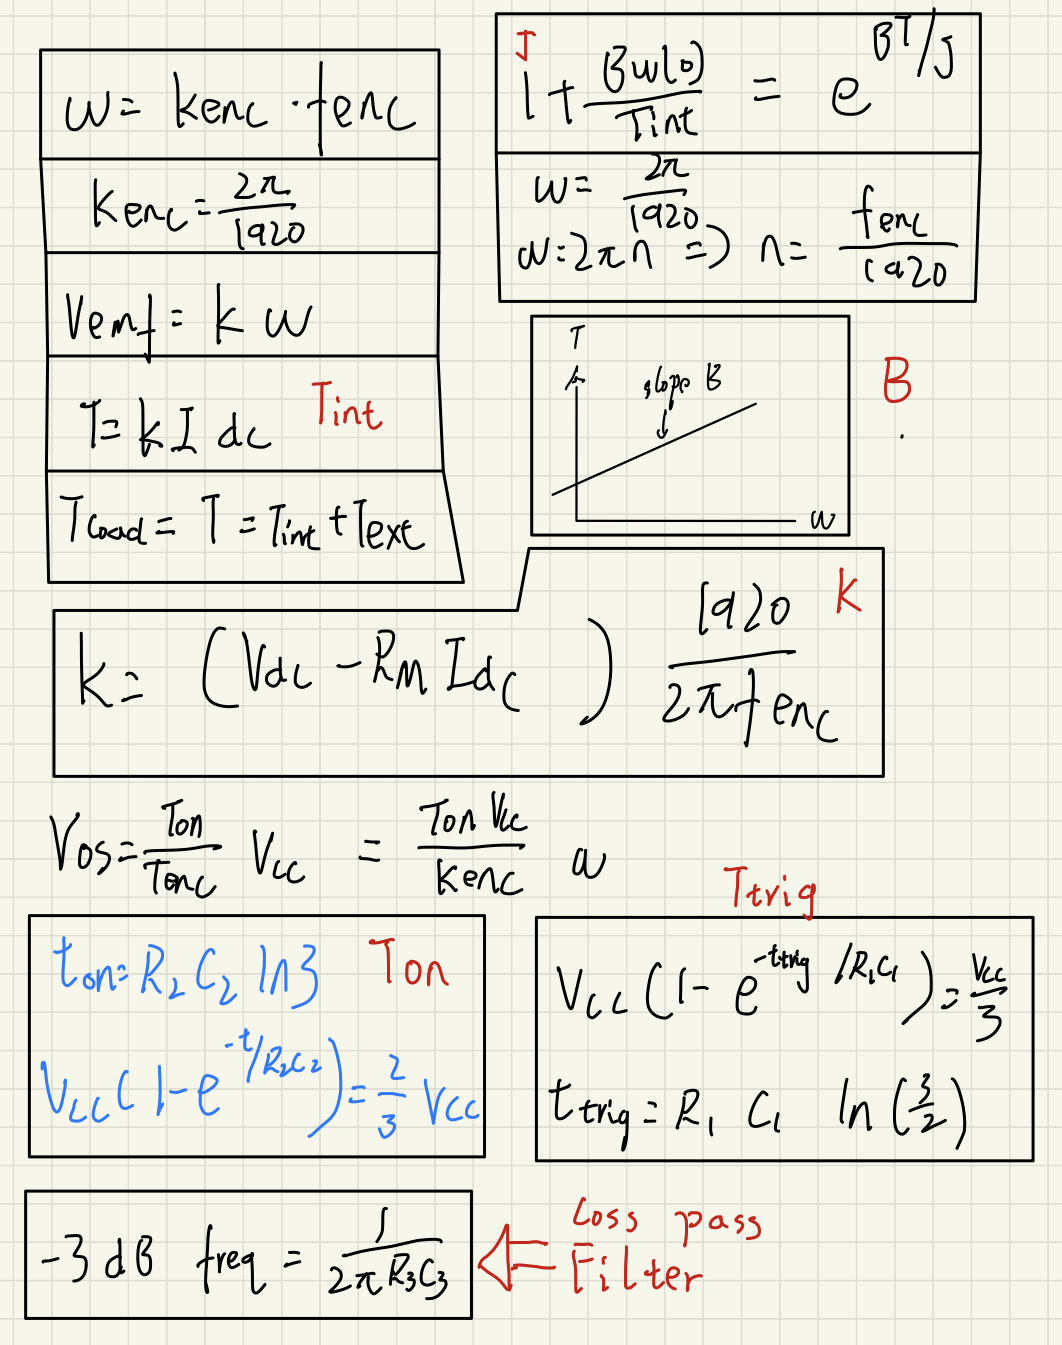 ω = kenc · fenc
kenc = 2π/1920
Vemf = k ω
T = k I dc Tint
Tload = T = Tint + Text
J
1 + Bω(0)/Tint = e^BT/J
ω = 2π/1920
ω = 2πn => n = fenc/1920
T
slope B
ω
B
k = (Vdc - RM Idc) 1920/2πfenc
k
Vos = Ton/Tenc Vcc = Ton Vcc/kenc ω
ton = R2 C2 ln3 Ton
Vcc(1-e^-t/R2C2) = 2/3 Vcc
Ttrig
Vcc(1-e^-ttrig/R1C1) = Vcc/3
ttrig = R1 C1 ln(3/2)
-3 dB freq = 1/2πR3C3
Loss pass
Filter